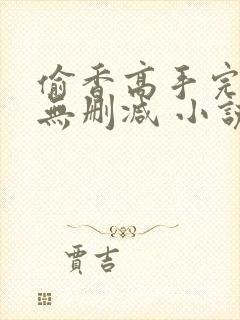 偷香高手完
無删减 小説
賈吉